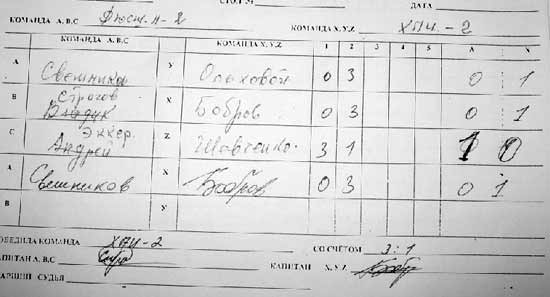 СТОЛ № ДАТА
КОМАНДА А.В.С Фюст.Н-2 КОМАНДА X.Y.Z ХПИ-2
КОМАНДА А.В.С КОМАНДА X.Y.Z 1 2 3 4 5 А X
А Свешников У Ольховой 0 3 0 1
В Строгов X Бобров 0 3 0 1
С Эккер. Андрей Z Шавченко 3 1 1 0
А Свешников X Бобров 0 3 0 1
В У
ПОБЕДИЛА КОМАНДА ХПИ-2 СО СЧЁТОМ 3:1
КАПИТАН А.В.С КАПИТАН X.Y.Z
СУДЬЯ